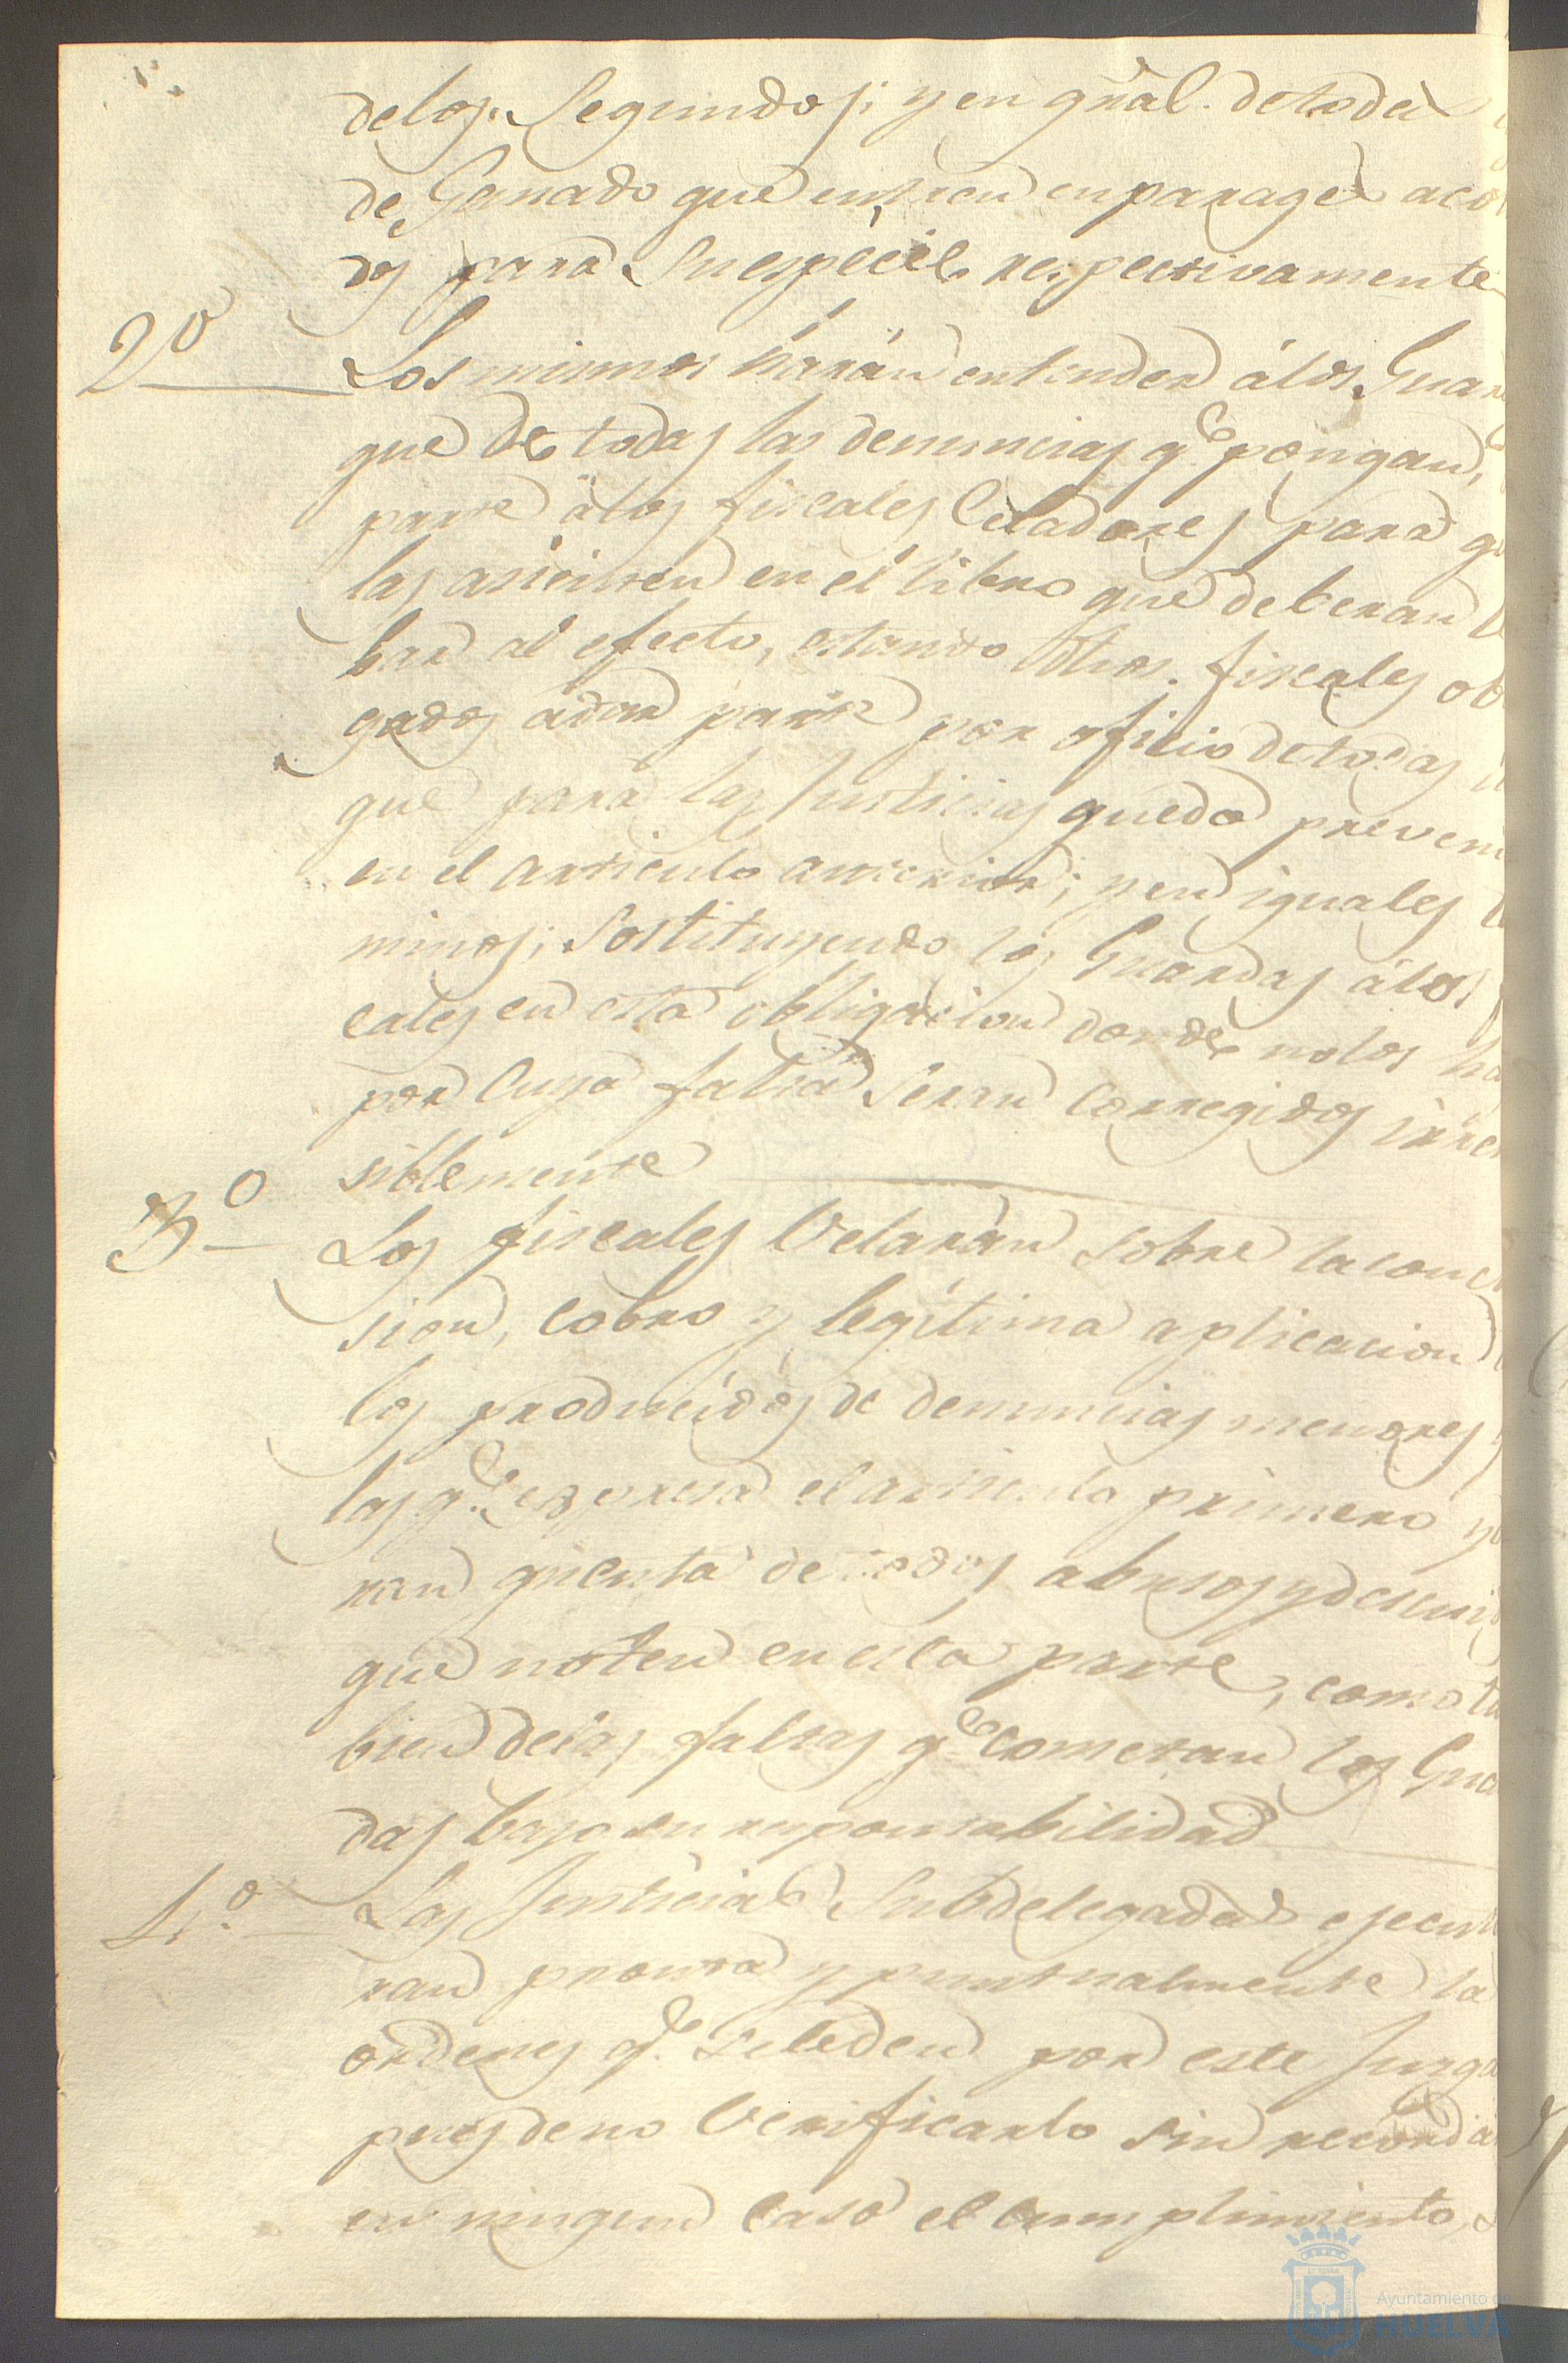 delos Segundos; y en gral. de toda
de Ganado que entren en parages aco
dos para su especie respectivamente
2º Los mismos harán entender á los Guar
que de todas las denuncias q.e pongan,
parte á los fiscales Celadores para q
las asienten en el libro que deberan lle
bar al efecto, estando dhos. fiscales ob
gados á dar parte por oficio de todas l
que para las Justicias queda preveni
en el articulo anterior; y en iguales te
minos; sostituyendo los Guardas á los
cales en esta obligacion donde no los ha
por cuya falta seran corregidos irre
siblemente
3º Los fiscales Velarán sobre la con
sion, cobro y legítima aplicacion
los producidos de denuncias menores y
las q.e expresa el articulo primero y
ran quenta de todos abusos y descui
que noten en esta parte, como ta
bien de las faltas q.e cometan los Gua
das bajo su responsabilidad
4º. Las Justicias Subdelegadas ejecut
ran pronta y puntualmente la
ordenes q.e se le den por este Juzga
pues de no Verificarlo sin recorda
en ningun caso el cumplimiento,
Ayuntamiento de
HUELVA